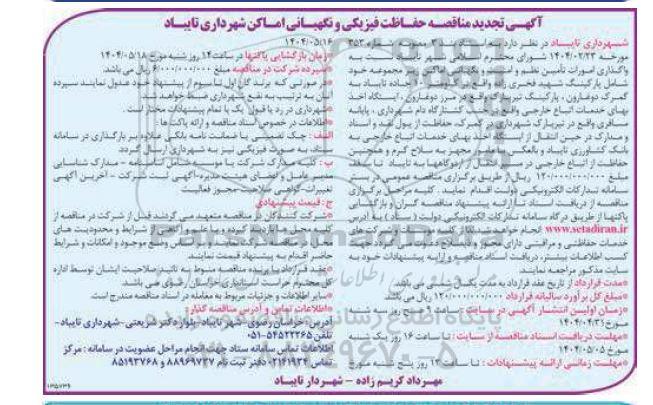 آگهی تجدید مناقصه حفاظت فیزیکی و نگهبانی اماکن شهرداری تایباد
شهرداری تایباد در نظر دارد به استناد مصوبه شماره ۳۵۳
مورخه ۱۴۰۴/۰۲/۲۳ شورای محترم اسلامی شهر تایباد نسبت به
واگذاری امورات تأمین نظم و امنیت و نگهبانی اماکن زیر مجموعه خود
شامل پارکینگ شهید فخری زاده واقع در جاده تایباد به
گمرک دوغارون، پارکینگ تیرپارک واقع در مرز دوغارون، ایستگاه اخذ
بهای خدمات اتباع خارجی کشتارگاه دام شهرداری، پایانه
مسافری واقع در تیرپارک شهرداری در گمرک، حفاظت از پول نقد و اسناد
و مدارک در حین انتقال از ایستگاه اخذ بهای خدمات اتباع خارجی به
بانک کشاورزی تایباد و بالعکس مجهز به سلاح گرم و همچنین
حفاظت از اتباع خارجی در مسیر انتقال از اردوگاهها به تایباد
مبلغ ۱۲۰/۰۰۰/۰۰۰/۰۰۰ ریال از طریق برگزاری مناقصه عمومی در بستر
سامانه تدارکات الکترونیکی دولت اقدام نماید. کلیه مراحل برگزاری
مناقصه از دریافت اسناد تا ارائه پیشنهاد مناقصه گران و بازگشایی
پاکتها از طریق درگاه سامانه تدارکات الکترونیکی دولت (ستاد) به آدرس
www.setadiran.ir انجام خواهد شد. لذا از کلیه شرکت های
خدمات حفاظتی و مراقبتی دارای
کسب اطلاعات بیشتر، دریافت اسناد مناقصه و ارایه پیشنهادات خود به
سایت مذکور مراجعه نمایند.
*مدت قرارداد از تاریخ عقد قرارداد به مدت یکسال شمسی می باشد.
*مبلغ کل برآورد سالیانه قرارداد ۱۲۰/۰۰۰/۰۰۰/۰۰۰ ریال می باشد
*زمان اولین انتشار آگهی در سایت: ساعت روز سه شنبه
مورخ ۱۴۰۴/۰۴/۳۱
*مهلت دریافت اسناد مناقصه از سایت: تا ساعت ۱۶ روز یک شنبه
مورخ ۱۴۰۴/۰۵/۰۵
*مهلت زمانی ارائه پیشنهادات: تا ساعت ۱۳ روز پنج شنبه مورخ
۱۴۰۴/۰۵/۱۶
*زمان بازگشایی پاکتها در ساعت ۱۴ روز شنبه مورخ ۱۴۰۴/۰۵/۱۸
*سپرده شرکت در مناقصه مبلغ ۶/۰۰۰/۰۰۰/۰۰۰ ریال می باشد.
*در صورتی که برندگان اول تا سوم از پیشنهاد خود عدول نمایند سپرده
آنان به ترتیب به نفع شهرداری ضبط خواهد شد.
*شهرداری در رد یا قبول یک یا تمام پیشنهادات مختار است.
*اطلاعات در خصوص اسناد مناقصه و ارائه پاکت ها:
الف: چک تضمینی یا ضمانت نامه بانکی علاوه بر بارگذاری در سامانه
ستاد، به صورت فیزیکی نیز به شهرداری ارسال گردد.
ب: کلیه مدارک شرکت یا موسسه شامل اساسنامه - مدارک شناسایی
مدیر عامل و اعضای هیئت مدیره-آگهی ثبت شرکت - آخرین آگهی
تغییرات-گواهی صلاحیت-مجوز فعالیت
ج: قیمت پیشنهادی
*شرکت کنندگان در مناقصه متعهد می گردند قبل از شرکت در مناقصه از
کلیه محل بازدید کرده و با علم و آگاهی از شرایط و محدودیت های
وضع موجود و امکانات و شرایط
حاضر اقدام به پیشنهاد قیمت نمایند.
*عقد قرارداد با برنده مناقصه منوط به تائید صلاحیت ایشان توسط اداره
کل محترم حراست استانداری خراسان رضوی می باشد.
*سایر اطلاعات و جزئیات مربوط به معامله در اسناد مناقصه مندرج است.
*اطلاعات تماس و آدرس مناقصه گذار:
آدرس: خراسان رضوی-شهر تایباد-بلوار دکتر شریعتی-شهرداری تایباد-
تلفن ۵۴۵۲۲۲۶۵-۰۵۱
اطلاعات تماس سامانه ستاد جهت انجام مراحل عضویت در سامانه: مرکز
تماس ۰۲۱۴۱۹۳۴ دفتر ثبت نام ۸۸۹۶۹۷۳۷ و ۸۵۱۹۳۷۶۸
مهرداد کریم زاده - شهردار تایباد